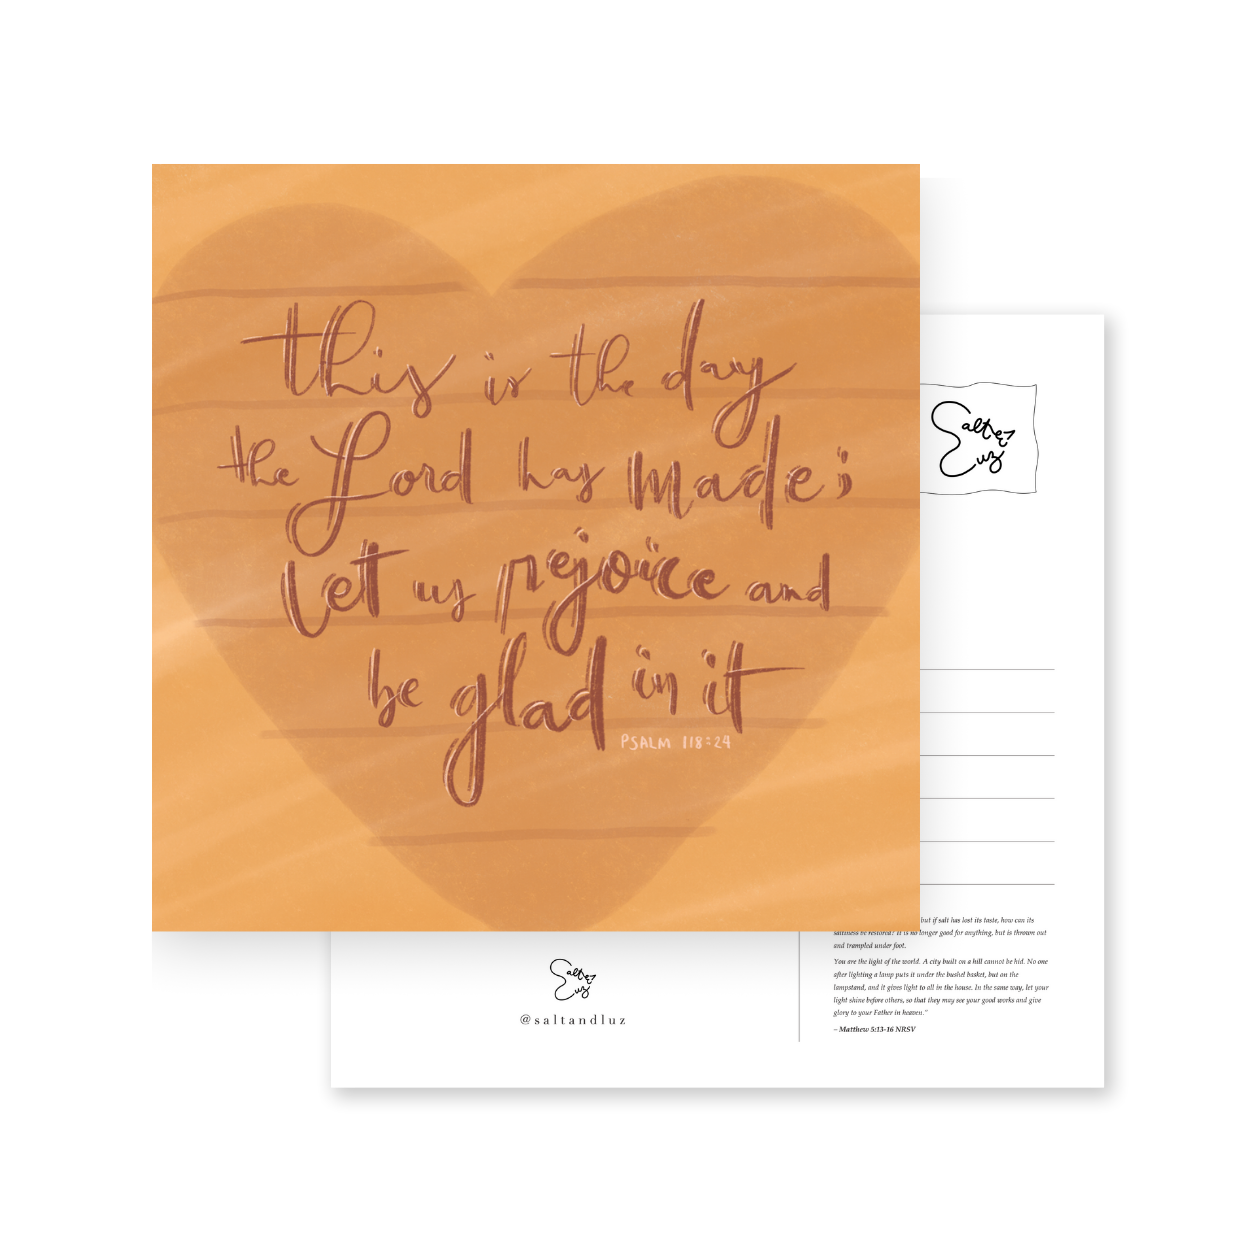 this is the day
the Lord has made;
let us rejoice and
be glad in it
PSALM 118:24
Salt &
Luz
but if salt has lost its taste, how can its
saltiness be restored? It is no longer good for anything, but is thrown out
and trampled under foot.
You are the light of the world. A city built on a hill cannot be hid. No one
after lighting a lamp puts it under the bushel basket, but on the
lampstand, and it gives light to all in the house. In the same way, let your
light shine before others, so that they may see your good works and give
glory to your Father in heaven."
– Matthew 5:13-16 NRSV
Salt &
Luz
@saltandluz